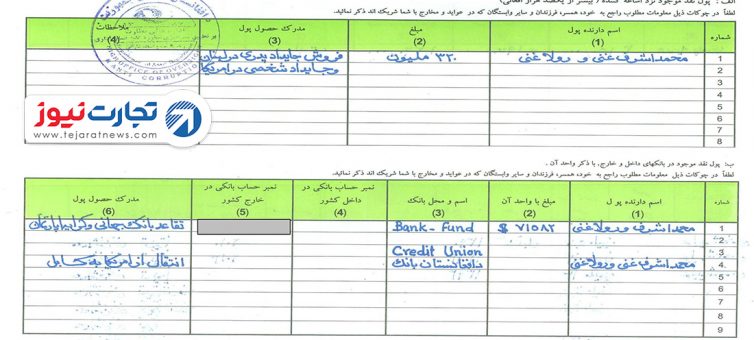 الف : پول نقد موجود نزد اشاعه کننده ( بیشتر از یکصد هزار افغانی)
لطفاً در چوکات ذیل معلومات مطلوب راجع به خود، همسر، فرزندان و سایر وابستگان که در عواید و مخارج با شما شریک اند ذکر نمائید.
شماره
اسم دارنده پول (1)
مبلغ (2)
مدرک حصول پول (3)
ملاحظات (4)
1
محمد اشرف غنی و رولا غنی
۳۲۰ ملیون
فروش جایداد پدری در لبنان
2
و جایداد شخصی در امریکا
3
4
5
6
7
8
تجارت نیوز
www.tejaratnews.com
ب: پول نقد موجود در بانکهای داخل و خارج, با ذکر واحد آن .
لطفاً در چوکات ذیل معلومات مطلوب راجع به خود، همسر، فرزندان و سایر وابستگان که در عواید و مخارج با شما شریک اند ذکر نمائید.
شماره
اسم دارنده پو ل (1)
مبلغ با واحد آن (2)
اسم و محل بانک (3)
نمبر حساب بانکی در داخل کشور (4)
نمبر حساب بانکی در خارج کشور (5)
مدرک حصول پول (6)
1
محمد اشرف و رولا غنی
$ ۷۱۵۸۲
Bank - Fund
تقاعد بانک جهانی و کرایه اپارتمان
2
3
Credit Union
4
محمد اشرف غنی و رولا غنی
دافغانستان بانک
انتقالی از امریکا به کابل
5
6
7
8
9